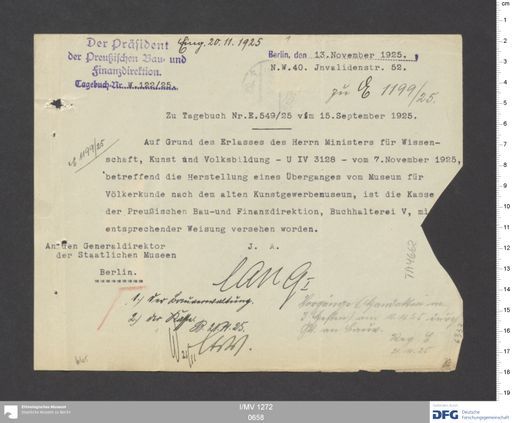 Der Präsident
der Preußischen Bau- und
Finanzdirektion.
Tagebuch-Nr. V. 122/25.
Eing. 20.11.1925
Berlin, den 13.November 1925.
N.W.40. Jnvalidenstr. 52.
zu E 1199/25.
Zu Tagebuch Nr.E.549/25 vim 15.September 1925.
E 1199/25
Auf Grund des Erlasses des Herrn Ministers für Wissen-
schaft, Kunst und Volksbildung - U IV 3128 - vom 7.November 1925,
betreffend die Herstellung eines Überganges vom Museum für
Völkerkunde nach dem alten Kunstgewerbemuseum, ist die Kasse
der Preußischen Bau-und Finanzdirektion, Buchhalterei V, mi
entsprechender Weisung versehen worden.
An den Generaldirektor
der Staatlichen Museen
Berlin.
J. A.
Lange
1) Der Bauverwaltung.
2) der Kasse
B 20.11.25.
Reg. E
21.11.25
Ethnologisches Museum
Staatliche Museen zu Berlin
I/MV 1272
0658
Gefördert durch
DFG Deutsche
Forschungsgemeinschaft
cm
1
2
3
4
5
6
7
8
9
10
11
12
13
14
15
16
17
18
19